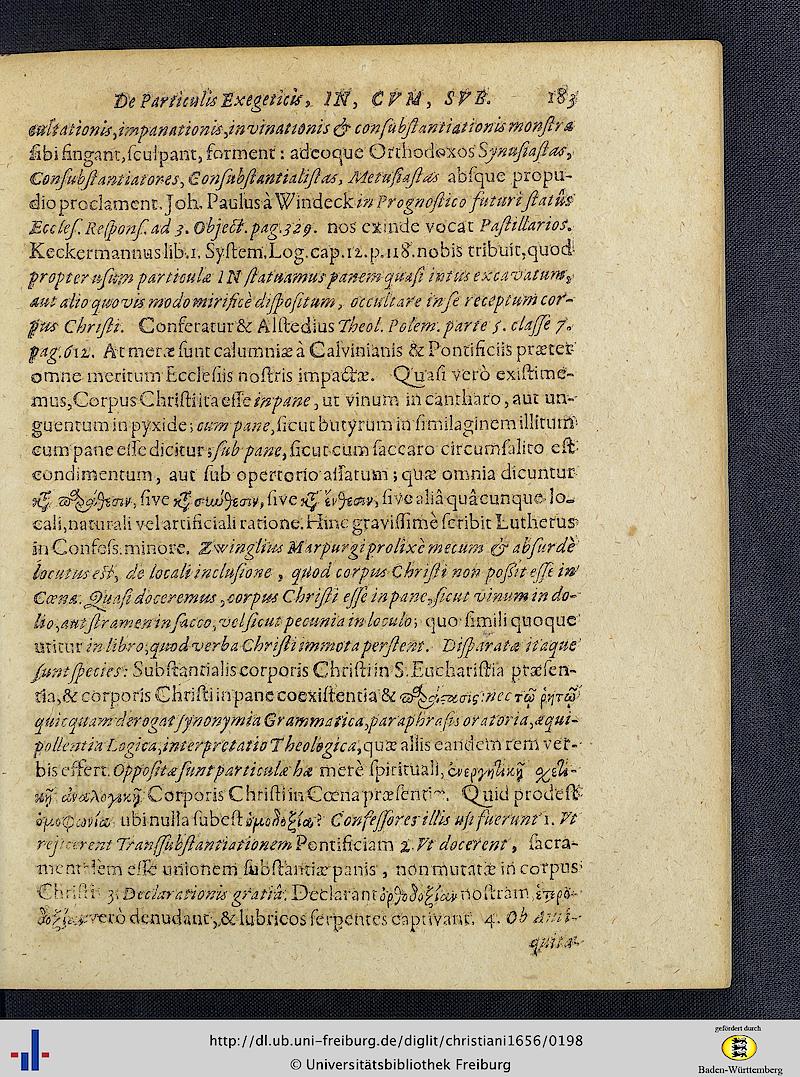 De Particulis Exegeticis, IN, CVM, SVB. 183
cultationis, impanationis, invinationis & consubstantiationis monstra
sibi fingant, sculpant, forment: adeoque Orthodoxos Synusiastas,
Consubstantiatores, Consubstantialistas, Metusiastas absque propu-
dio proclament. Joh. Paulus à Windeck in Prognostico futuri statûs
Eccles. Respons. ad 3. Object. pag. 329. nos exinde vocat Pastillarios.
Keckermannus lib. 1. System. Log. cap. 12. p. 118. nobis tribuit, quod
propter usum particulæ IN statuamus panem quasi intus excavatum,
aut alio quovis modo mirificè dispositum, occultare in se receptum cor-
pus Christi. Conferatur & Alstedius Theol. Polem. parte 5. classe 7.
pag. 612. At meræ sunt calumniæ à Calvinianis & Pontificiis præter
omne meritum Ecclesiis nostris impactæ. Quasi verò existime-
mus, Corpus Christi ita esse in pane, ut vinum in cantharo, aut un-
guentum in pyxide; cum pane, sicut butyrum in similaginem illitum
cum pane esse dicitur; sub pane, sicut cum saccaro circumsalito est
condimentum, aut sub opertorio assatum; quæ omnia dicuntur
κτ̃ πρόσθεσιν, sive κτ̃ συνθεσιν, sive κτ̃ ἔνθεσιν, sive aliâ quâcunque lo-
cali, naturali vel artificiali ratione. Hinc gravissimè scribit Lutherus
in Confess. minore. Zwinglius Marpurgi prolixè mecum & absurdè
locutus est, de locali inclusione, quod corpus Christi non possit esse in
Cœna. Quasi doceremus, corpus Christi esse in pane, sicut vinum in do-
lio, aut stramen in sacco, vel sicut pecunia in loculo; quo simili quoque
utitur in libro, quod verba Christi immota perstent. Disparatæ itaque
sunt species: Substantialis corporis Christi in S. Eucharistia præsen-
tia, & corporis Christi in pane coexistentia & nec τῷ ῥητῷ
quicquam derogat synonymia Grammatica, paraphrasis oratoria, æqui-
pollentia Logica, interpretatio Theologica, quæ aliis eandem rem ver-
bis effert. Oppositæ sunt particulæ hæ merè spirituali, ἐνεργητικῇ σχετι-
κῇ ἀναλογικῇ Corporis Christi in Cœna præsentiæ. Quid prodest
ὁμοφωνία ubi nulla subest ὁμοδοξία? Confessores illis usi fuerunt 1. Vt
rejicerent Transsubstantiationem Pontificiam 2. Vt docerent, sacra-
mentalem esse unionem substantiæ panis, non mutatæ in corpus
Christi. 3. Declarationis gratiâ. Declarant ὀρθοδοξίαν nostram, ἑτερο-
δοξίαν verò denudant, & lubricos serpentes captivant. 4. Ob Anti-
quita-
http://dl.ub.uni-freiburg.de/diglit/christiani1656/0198
© Universitätsbibliothek Freiburg
gefördert durch
Baden-Württemberg